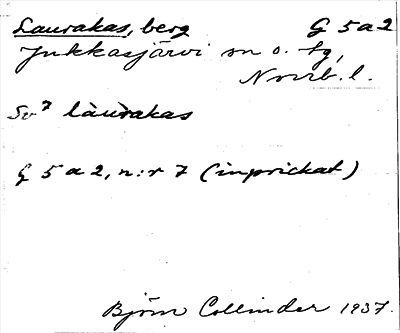 Laurakas, berg G 5 a 2
Jukkasjärvi sn o. tg,
Norrb. l.
Sv? làùrakas
G 5 a 2, n:r 7 (inprickat)
Björn Collinder 1937.